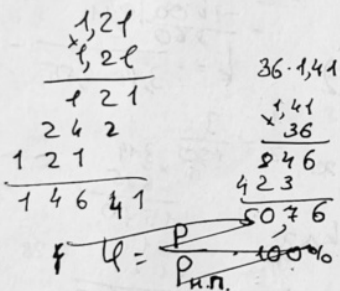 1,21
× 1,21
1 2 1
2 4 2
1 2 1
1 4 6 4 1
36 · 1,41
× 1,41
36
8 4 6
4 2 3
50,7 6
φ = P / Pн.п. 100%